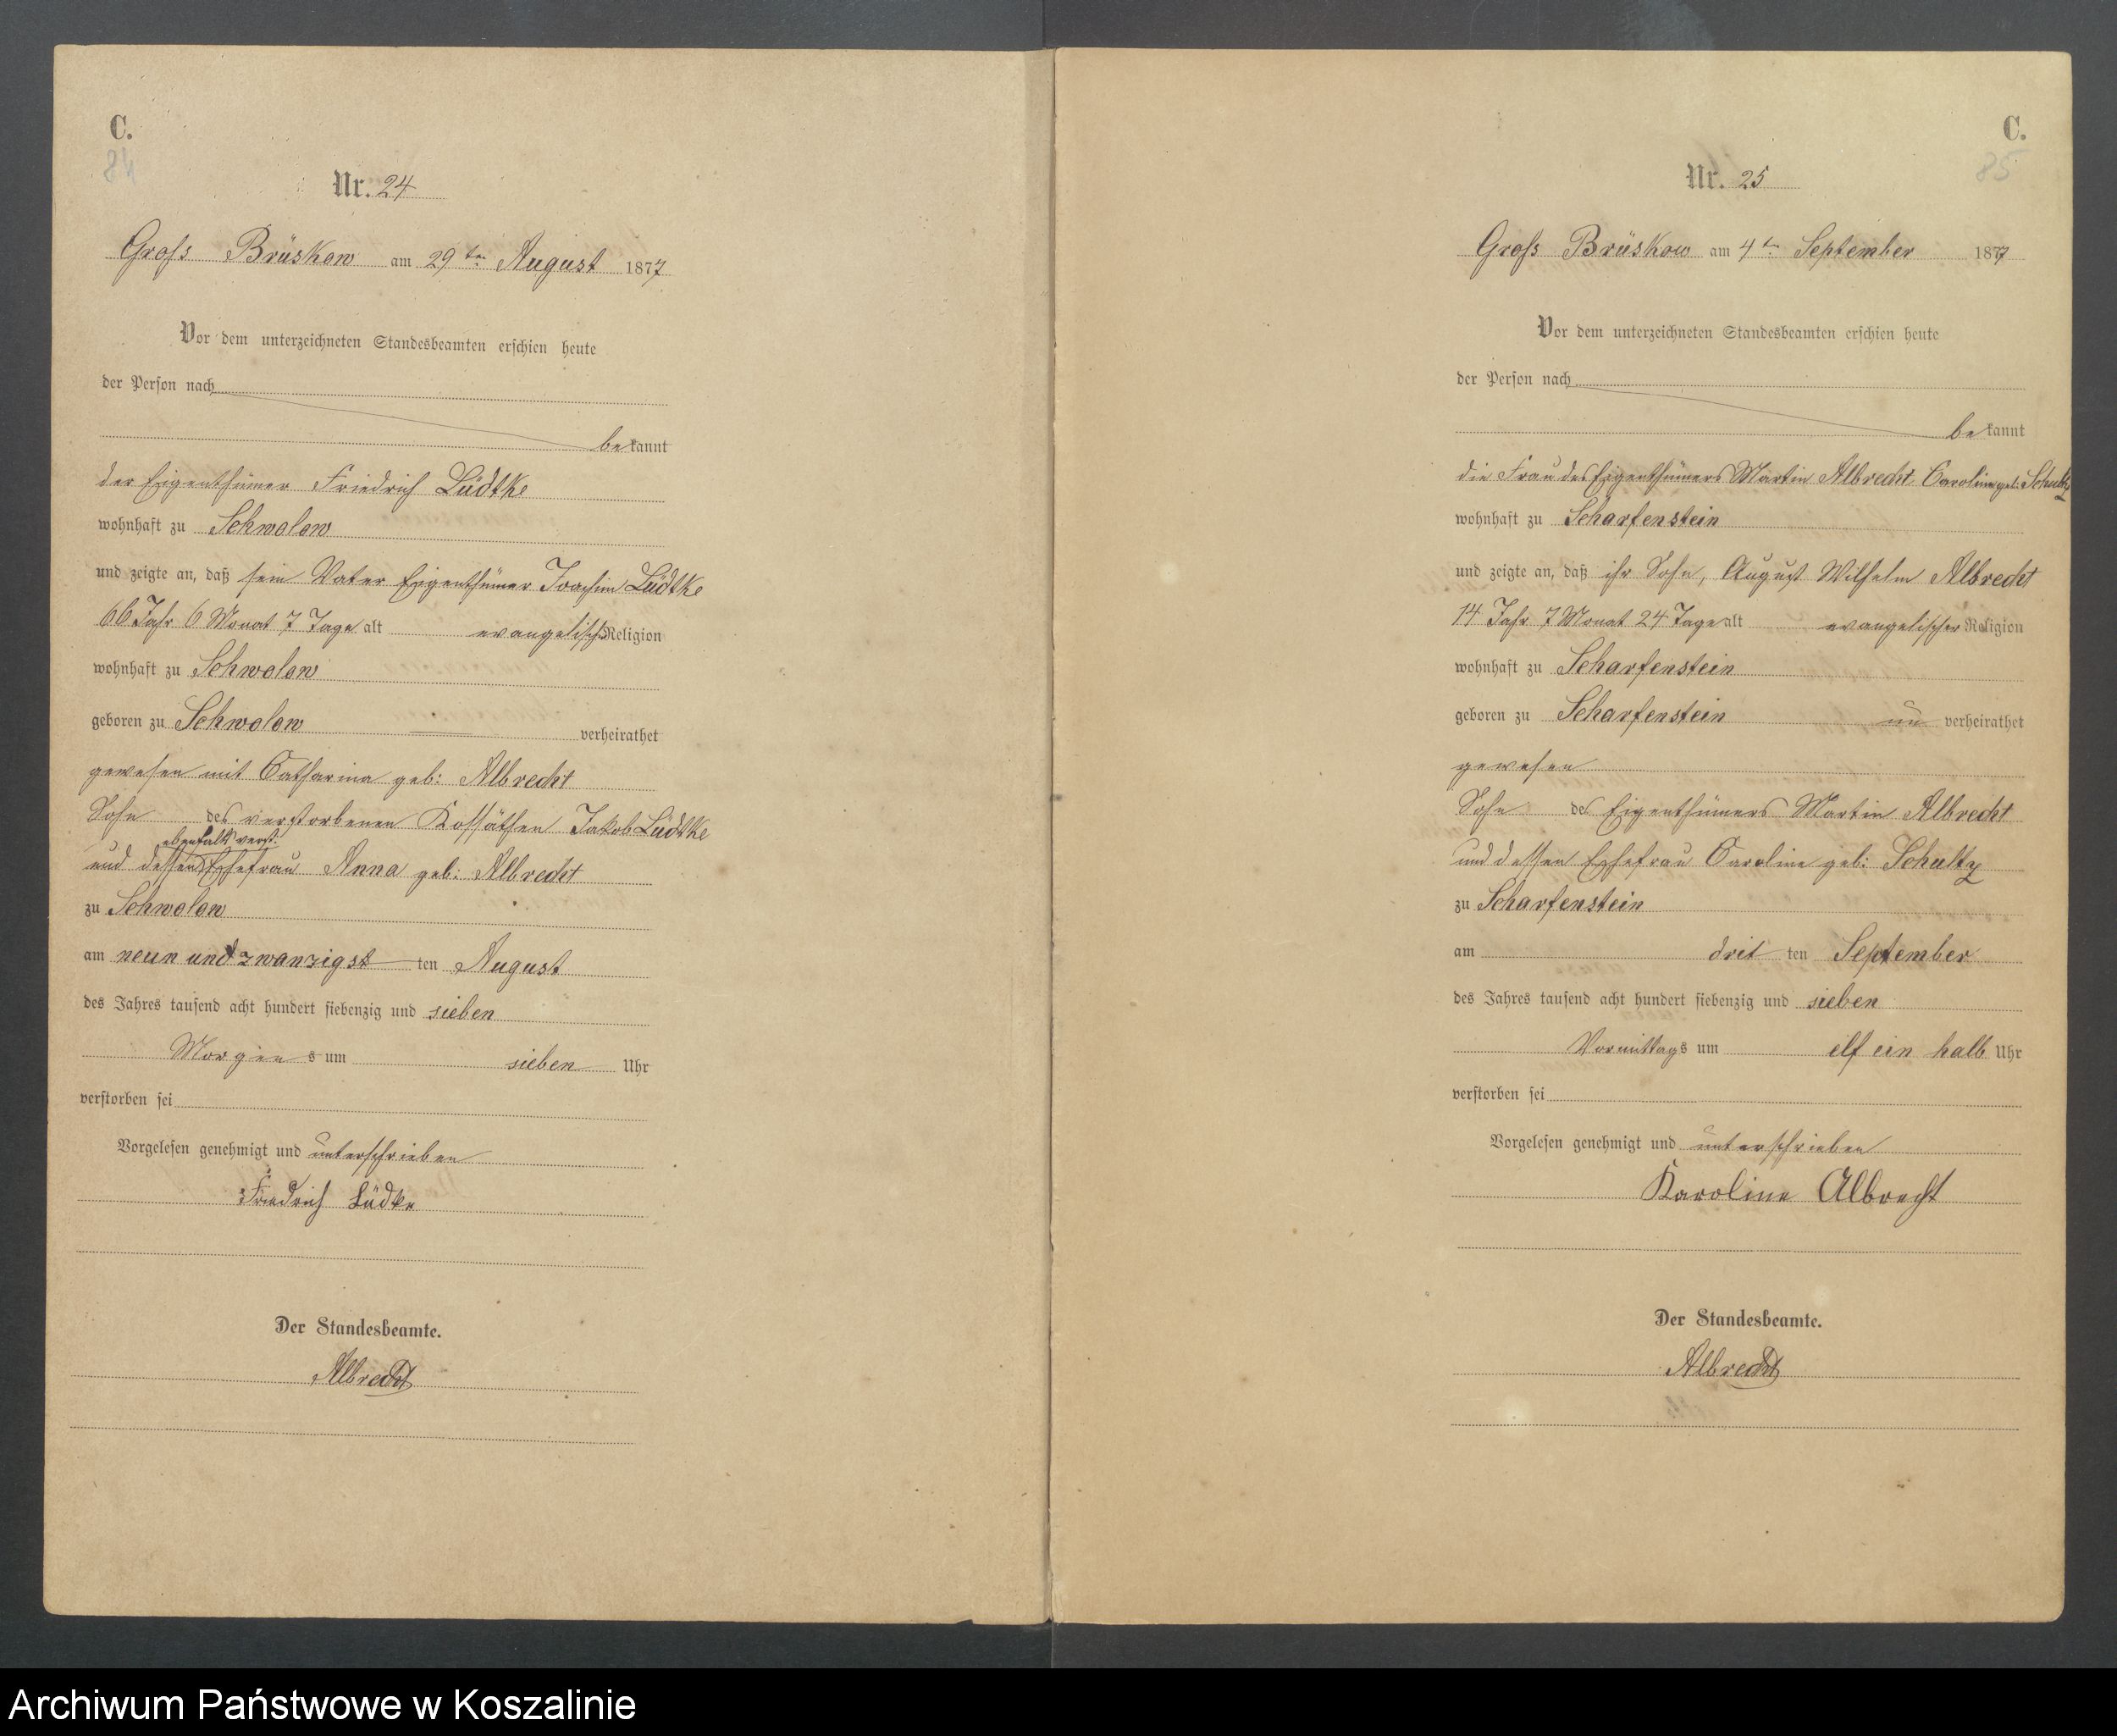 C.
84
Nr. 24
Gross Brüskow am 29ten August 1877
Vor dem unterzeichneten Standesbeamten erschien heute
der Person nach
bekannt
der Eigenthümer Friedrich Lüdtke
wohnhaft zu Schwolow
und zeigte an, daß sein Vater Eigenthümer Joachim Lüdtke
66 Jahr 6 Monat 7 Tage alt evangelischer Religion
wohnhaft zu Schwolow
geboren zu Schwolow verheirathet
gewesen mit Catharina geb: Albrecht
Sohn des verstorbenen Kossäthen Jakob Lüdtke
ebenfalls verst.
und dessen Ehefrau Anna geb: Albrecht
zu Schwolow
am neun und zwanzigst ten August
des Jahres tausend acht hundert siebenzig und sieben
Morgens um sieben Uhr
verstorben sei
Vorgelesen genehmigt und unterschrieben
Friedrich Lüdke
Der Standesbeamte.
Albrecht
C.
85
Nr. 25
Gross Brüskow am 4ten September 1877
Vor dem unterzeichneten Standesbeamten erschien heute
der Person nach
bekannt
die Frau des Eigenthümers Martin Albrecht Caroline geb: Schultz
wohnhaft zu Scharfenstein
und zeigte an, daß ihr Sohn, August Wilhelm Albrecht
14 Jahr 7 Monat 24 Tage alt evangelischer Religion
wohnhaft zu Scharfenstein
geboren zu Scharfenstein un verheirathet
gewesen
Sohn des Eigenthümers Martin Albrecht
und dessen Ehefrau Caroline geb: Schultz
zu Scharfenstein
am drit ten September
des Jahres tausend acht hundert siebenzig und sieben
Vormittags um elf ein halb Uhr
verstorben sei
Vorgelesen genehmigt und unterschrieben
Karoline Albrecht
Der Standesbeamte.
Albrecht
Archiwum Państwowe w Koszalinie